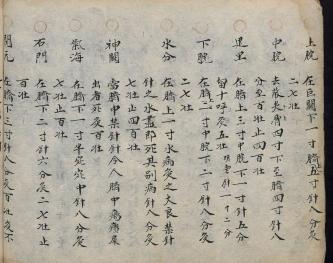 上脘
在巨闕下一寸臍五寸針八分灸
二七壯
中脘
去蔽骨四寸下至臍四寸針八
分至百壯止四百壯
建里
在臍上三寸中脘下一寸針五分
留十呼灸五壯 針一寸二分
下脘
在臍上二寸中脘下二寸針八分灸
二七壯
水分
在臍上一寸水病灸之大良禁針
針之水盡即死其別病針八分灸
七壯止四百壯
神闕
當臍中禁針針令人臍中瘍潰屎
出者死灸百壯
氣海
在臍下一寸半宛宛中針八分灸
七壯止百壯
石門
在臍下二寸針六分灸二七壯止
百壯
關元
在臍下三寸針八分灸百壯灸不